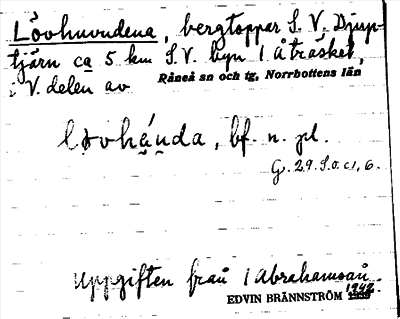 Lövhuvudena, bergtoppar S. V. Djup-
tjärn ca 5 km S.V. byn i Åträsket,
i V. delen av Råneå sn och tg, Norrbottens län
bf. n. pl.
G. 29. S. o. c1, 6.
Uppgiften från i Abrahamsån.
EDVIN BRÄNNSTRÖM 1942